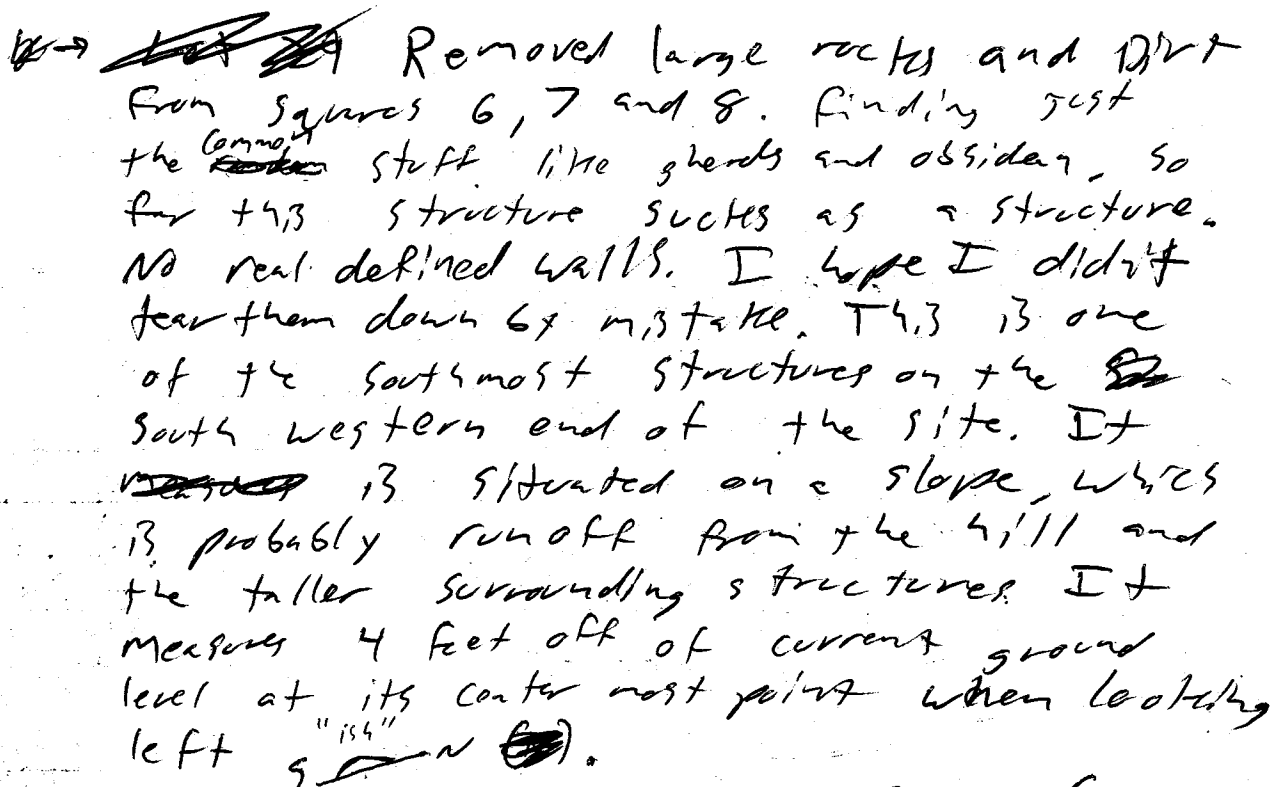 Removed large rocks and Dirt
from squares 6, 7 and 8. finding just
the common stuff like sherds and obsidean, so
far this structure sucks as a structure.
No real defined walls. I hope I didn't
tear them down by mistake. This is one
of the southmost structures on the
south western end of the site. It
is situated on a slope, which
is probably runoff from the hill and
the taller surrounding structures. It
measures 4 feet off of current ground
level at its center most point when looking
left "ish" S N